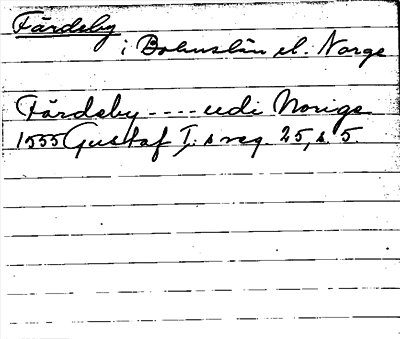 Färdeby
i Bohuslän el. Norge
Färdeby ---- udi Norige
1555 Gustaf I:s reg. 25, s. 5.